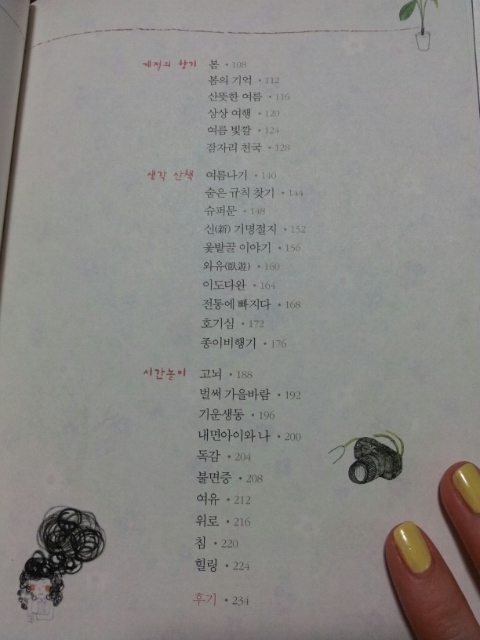 계절의 향기 봄 • 108
봄의 기억 • 112
산뜻한 여름 • 116
상상 여행 • 120
여름 빛깔 • 124
잠자리 천국 • 128
생각 산책 여름나기 • 140
숨은 규칙 찾기 • 144
슈퍼문 • 148
신(新) 기명절지 • 152
윷발골 이야기 • 156
와유(臥遊) • 160
이도다완 • 164
전통에 빠지다 • 168
호기심 • 172
종이비행기 • 176
시간놀이 고뇌 • 188
벌써 가을바람 • 192
기운생동 • 196
내면아이와 나 • 200
독감 • 204
불면증 • 208
여유 • 212
위로 • 216
침 • 220
힐링 • 224
후기 • 234